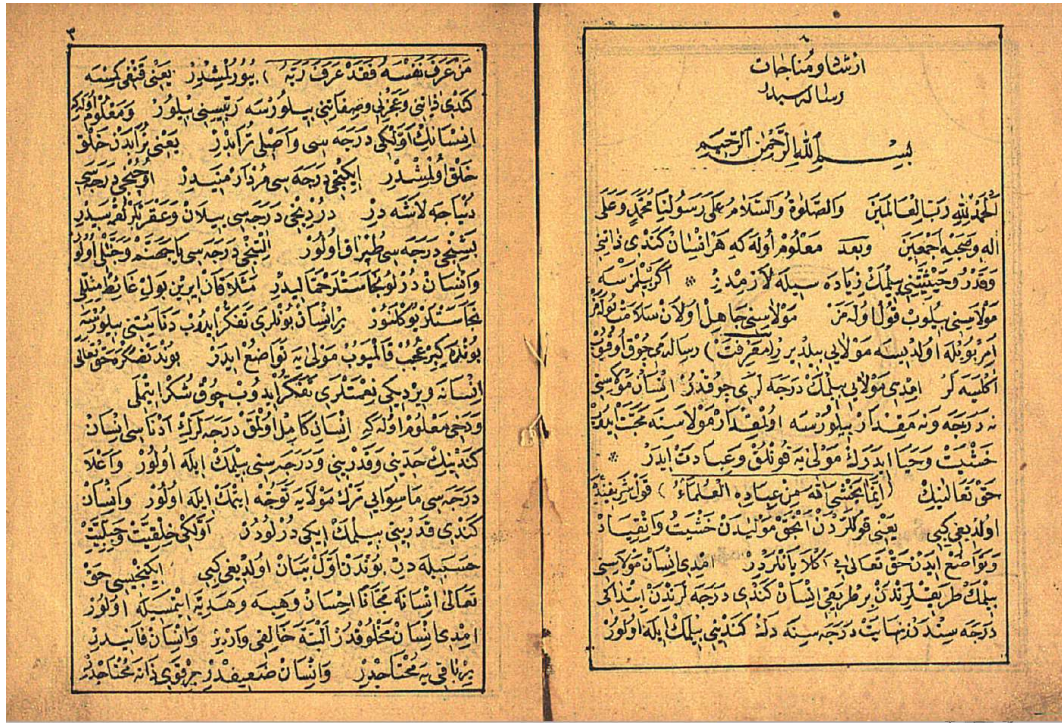 ٢
ارشاد و مناجات
رساله سیدر
بِسْمِ اللّٰهِ الرَّحْمٰنِ الرَّحِيمِ
اَلْحَمْدُ لِلّٰهِ رَبِّ الْعَالَمِينَ وَالصَّلٰوةُ وَالسَّلَامُ عَلٰى رَسُولِنَا مُحَمَّدٍ وَعَلٰى
اٰلِهِ وَصَحْبِهِ اَجْمَعِينَ وبعد معلوم اوله كه هر انسان كندى ذاتنى
وقدر وحيثيتنى بيلمك زياده سيله لازمدر * اكر بيلمزسه
مولاسنى بيلوب قول اوله مز مولاسنى جاهل اولان
امر بويله اولديسه مولايى بيلدير (معرفت) رساله مى چوق اوقيوب
اكلسه لر امدى مولايى بيلمك درجه لرى چوقدر انسان مولاسنى
نه درجه ونه مقدار بيلورسه اولمقدار مولاسنه محبت ايدر
خشيت وحيا ايدرك مولى يه قوللق وعبادت ايدر *
حق تعالينك (اِنَّمَا يَخْشَى اللّٰهَ مِنْ عِبَادِهِ الْعُلَمَاءُ) قول شريفنده
اولديغى كبى يعنى قوللردن انجق موليدن خشيت وانقياد
وتواضع ايدن حق تعالى يى اكلايانلردر امدى انسان مولاسنى
بيلمك طريقلرندن بر طريقى انسان كندى درجه لرندن ابتداكى
درجه سندن نهايت درجه سنه دك كندينى بيلمك ايله اولور
٣
مَنْ عَرَفَ نَفْسَهُ فَقَدْ عَرَفَ رَبَّهُ) بيورلمشدر يعنى قنغى كمسه
كندى ذاتنى وعجزينى وصفاتنى بيلورسه ربيسنى بيلور ومعلوم اوله كه
انسانك اولكى درجه سى واصلى ترابدر يعنى ترابدن خلق
خلق اولمشدر ايكنجى درجه سى مردار منيدر اوچنجى درجه سى
دنياجه لاشه در دردنجى درجه سى ييلان وعقربلر
بشنجى درجه سى طپراق اولور التنجى درجه سى يا جهنم وجنتلى اولور
وانسان درلو نجاستلر حماليدر مثلا قان ايرين بول غائط مثللى
نجاستلر يوكلنور بر انسان بونلرى تفكر ايدوب دنائتنى بيلورسه
بونده كبر عجب قالميوب مولى يه تواضع ايدر بوندنصكره حق تعالى
انسانه ويرديكى نعمتلرى تفكر ايدوب چوق شكر ايتملى
ودخى معلوم اوله كه انسان كامل اولمق درجه لرك ادناسى انسان
كندينك حدينى وقدرينى ودرجه سنى بيلمك ايله اولور واعلا
درجه سى ماسوايى ترك مولايه توجه ايتمك ايله اولور وانسان
كندى قدرينى بيلمك ايكى درلودر اولكى خلقيت وجبليت
حسبيله در بوندن اول بيان اولديغى كبى ايكنجيسى حق
تعالى انسانه مجانا احسان وهبه وهديه ايتمسيله اولور
امدى انسان مخلوقدر البته خالقى واردر وانسان فانيدر
بر باقى يه محتاجدر وانسان ضعيفدر بر قوى ذاته محتاجدر